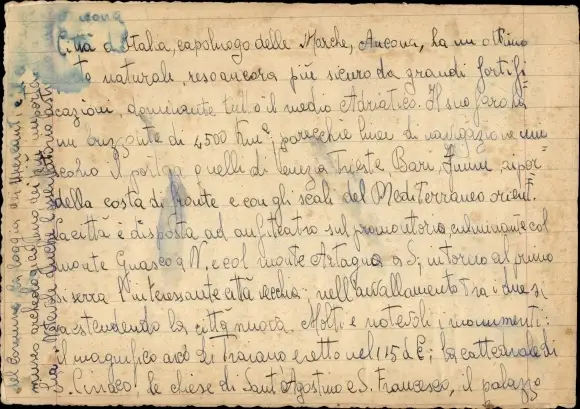 Città d'Italia, capoluogo delle Marche, Ancona, ha un ottimo
to naturale, reso ancora più sicuro da grandi fortifi
cazioni, dominante tutto il medio Adriatico. Il suo faro ha
un orizzonte di 4500 Km²; parecchie linee di navigazione uni
scono il porto a quelli di Venezia Trieste, Bari, Fiume, ai por
della costa di fronte e con gli scali del Mediterraneo orient.
La città è disposta ad anfiteatro sul promontorio, culminante col
monte Guasco a N. e col monte Astagno a S; intorno al primo
si serra l'interessante città vecchia; nell'avvallamento tra i due si
va estendendo la città nuova. Molti e notevoli i monumenti:
il magnifico arco di Traiano eretto nel 115 d. C; la cattedrale di
S. Ciriaco; le chiese di Sant'Agostino e S. Francesco, il palazzo
del Comune, la loggia dei Mercanti, e il
museo archeologico